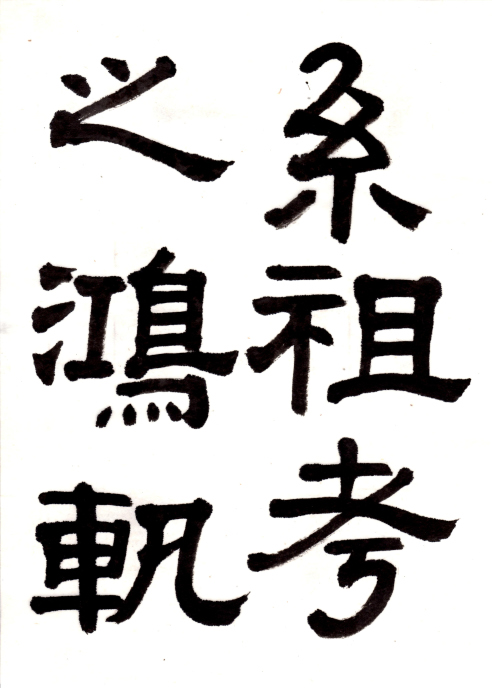 系祖考
之鴻軌